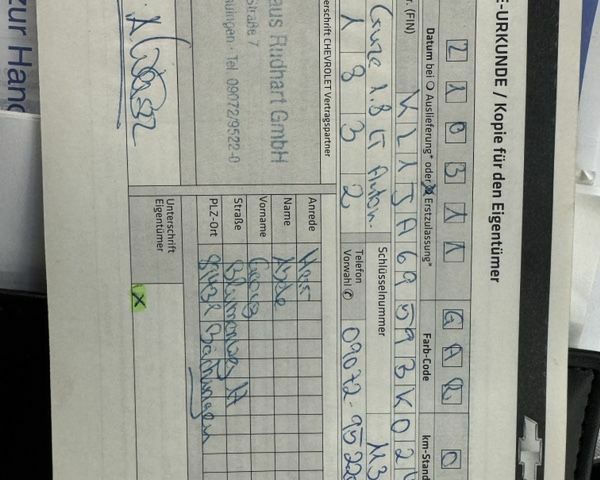 E-URKUNDE / Kopie für den Eigentümer
Datum bei O Auslieferung* oder Erstzulassung*
Farb-Code
km-Stand
2 1 0 3 1 1
G A R
0
r. (FIN)
K L 1 J A 6 9 5 9 B K 0 2
Cruze 1.8 LT Autom.
Schlüsselnummer
1 8 3 2
Telefon
Vorwahl
09072-9522
erschrift CHEVROLET Vertragspartner
aus Rudhart GmbH
Straße 7
auingen · Tel 09072/9522-0
Anrede
Name
Vorname
Georg
Straße
Blumenweg
PLZ-Ort
Unterschrift
Eigentümer
X
zur Hand